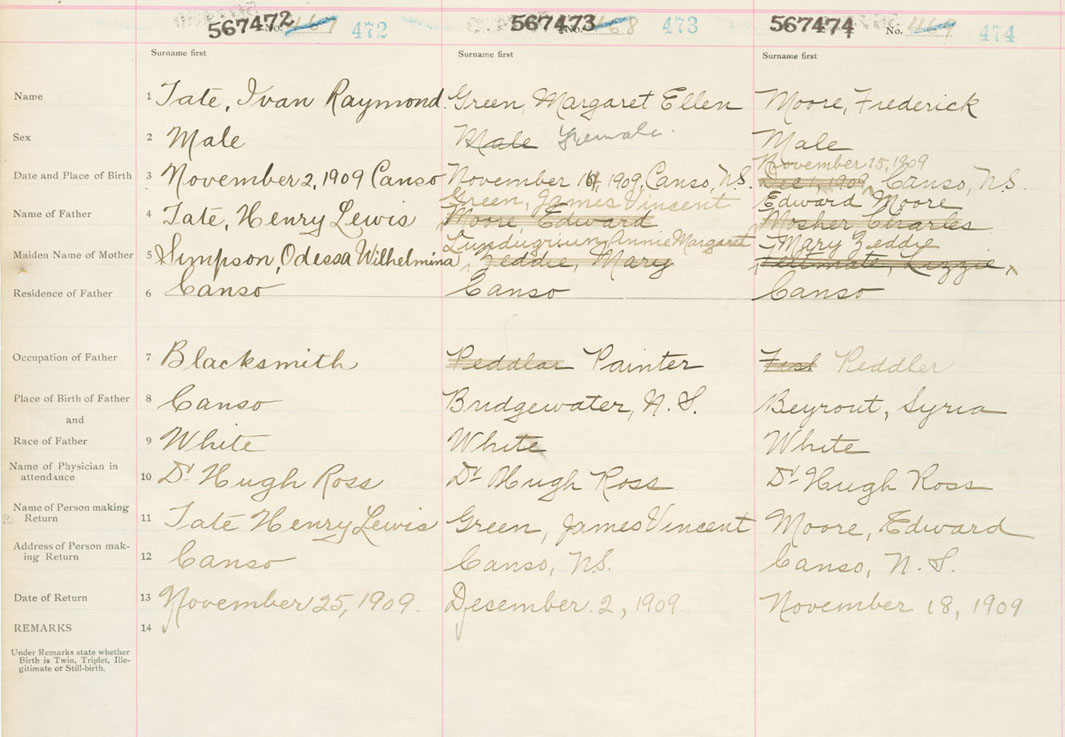 567472 No. 467 472
567473 No. 468 473
567474 No. 469 474
Surname first Surname first Surname first
Name 1 Tate, Ivan Raymond. Green, Margaret Ellen Moore, Frederick
Sex 2 Male Male Female. Male
November 15, 1909
Date and Place of Birth 3 November 2, 1909 Canso November 16, 1909, Canso, N.S. Dec 1, 1909 Canso, N.S.
Green, James Vincent Edward Moore
Name of Father 4 Tate, Henry Lewis Moore, Edward Mosher Charles
Annie Margaret Mary Zeddie
Maiden Name of Mother 5 Simpson, Odessa Wilhelmina Zeddie, Mary Lizzie
Residence of Father 6 Canso Canso Canso
Occupation of Father 7 Blacksmith Peddlar Painter Peddler
Place of Birth of Father 8 Canso Bridgewater, N.S. Beyrout, Syria
and
Race of Father 9 White White White
Name of Physician in
attendance 10 Dr. Hugh Ross Dr. Hugh Ross Dr. Hugh Ross
Name of Person making
Return 11 Tate Henry Lewis Green, James Vincent Moore, Edward
Address of Person mak-
ing Return 12 Canso Canso, N.S. Canso, N.S.
Date of Return 13 November 25, 1909. Desember. 2, 1909. November 18, 1909
REMARKS 14
Under Remarks state whether
Birth is Twin, Triplet, Ille-
gitimate or Still-birth.